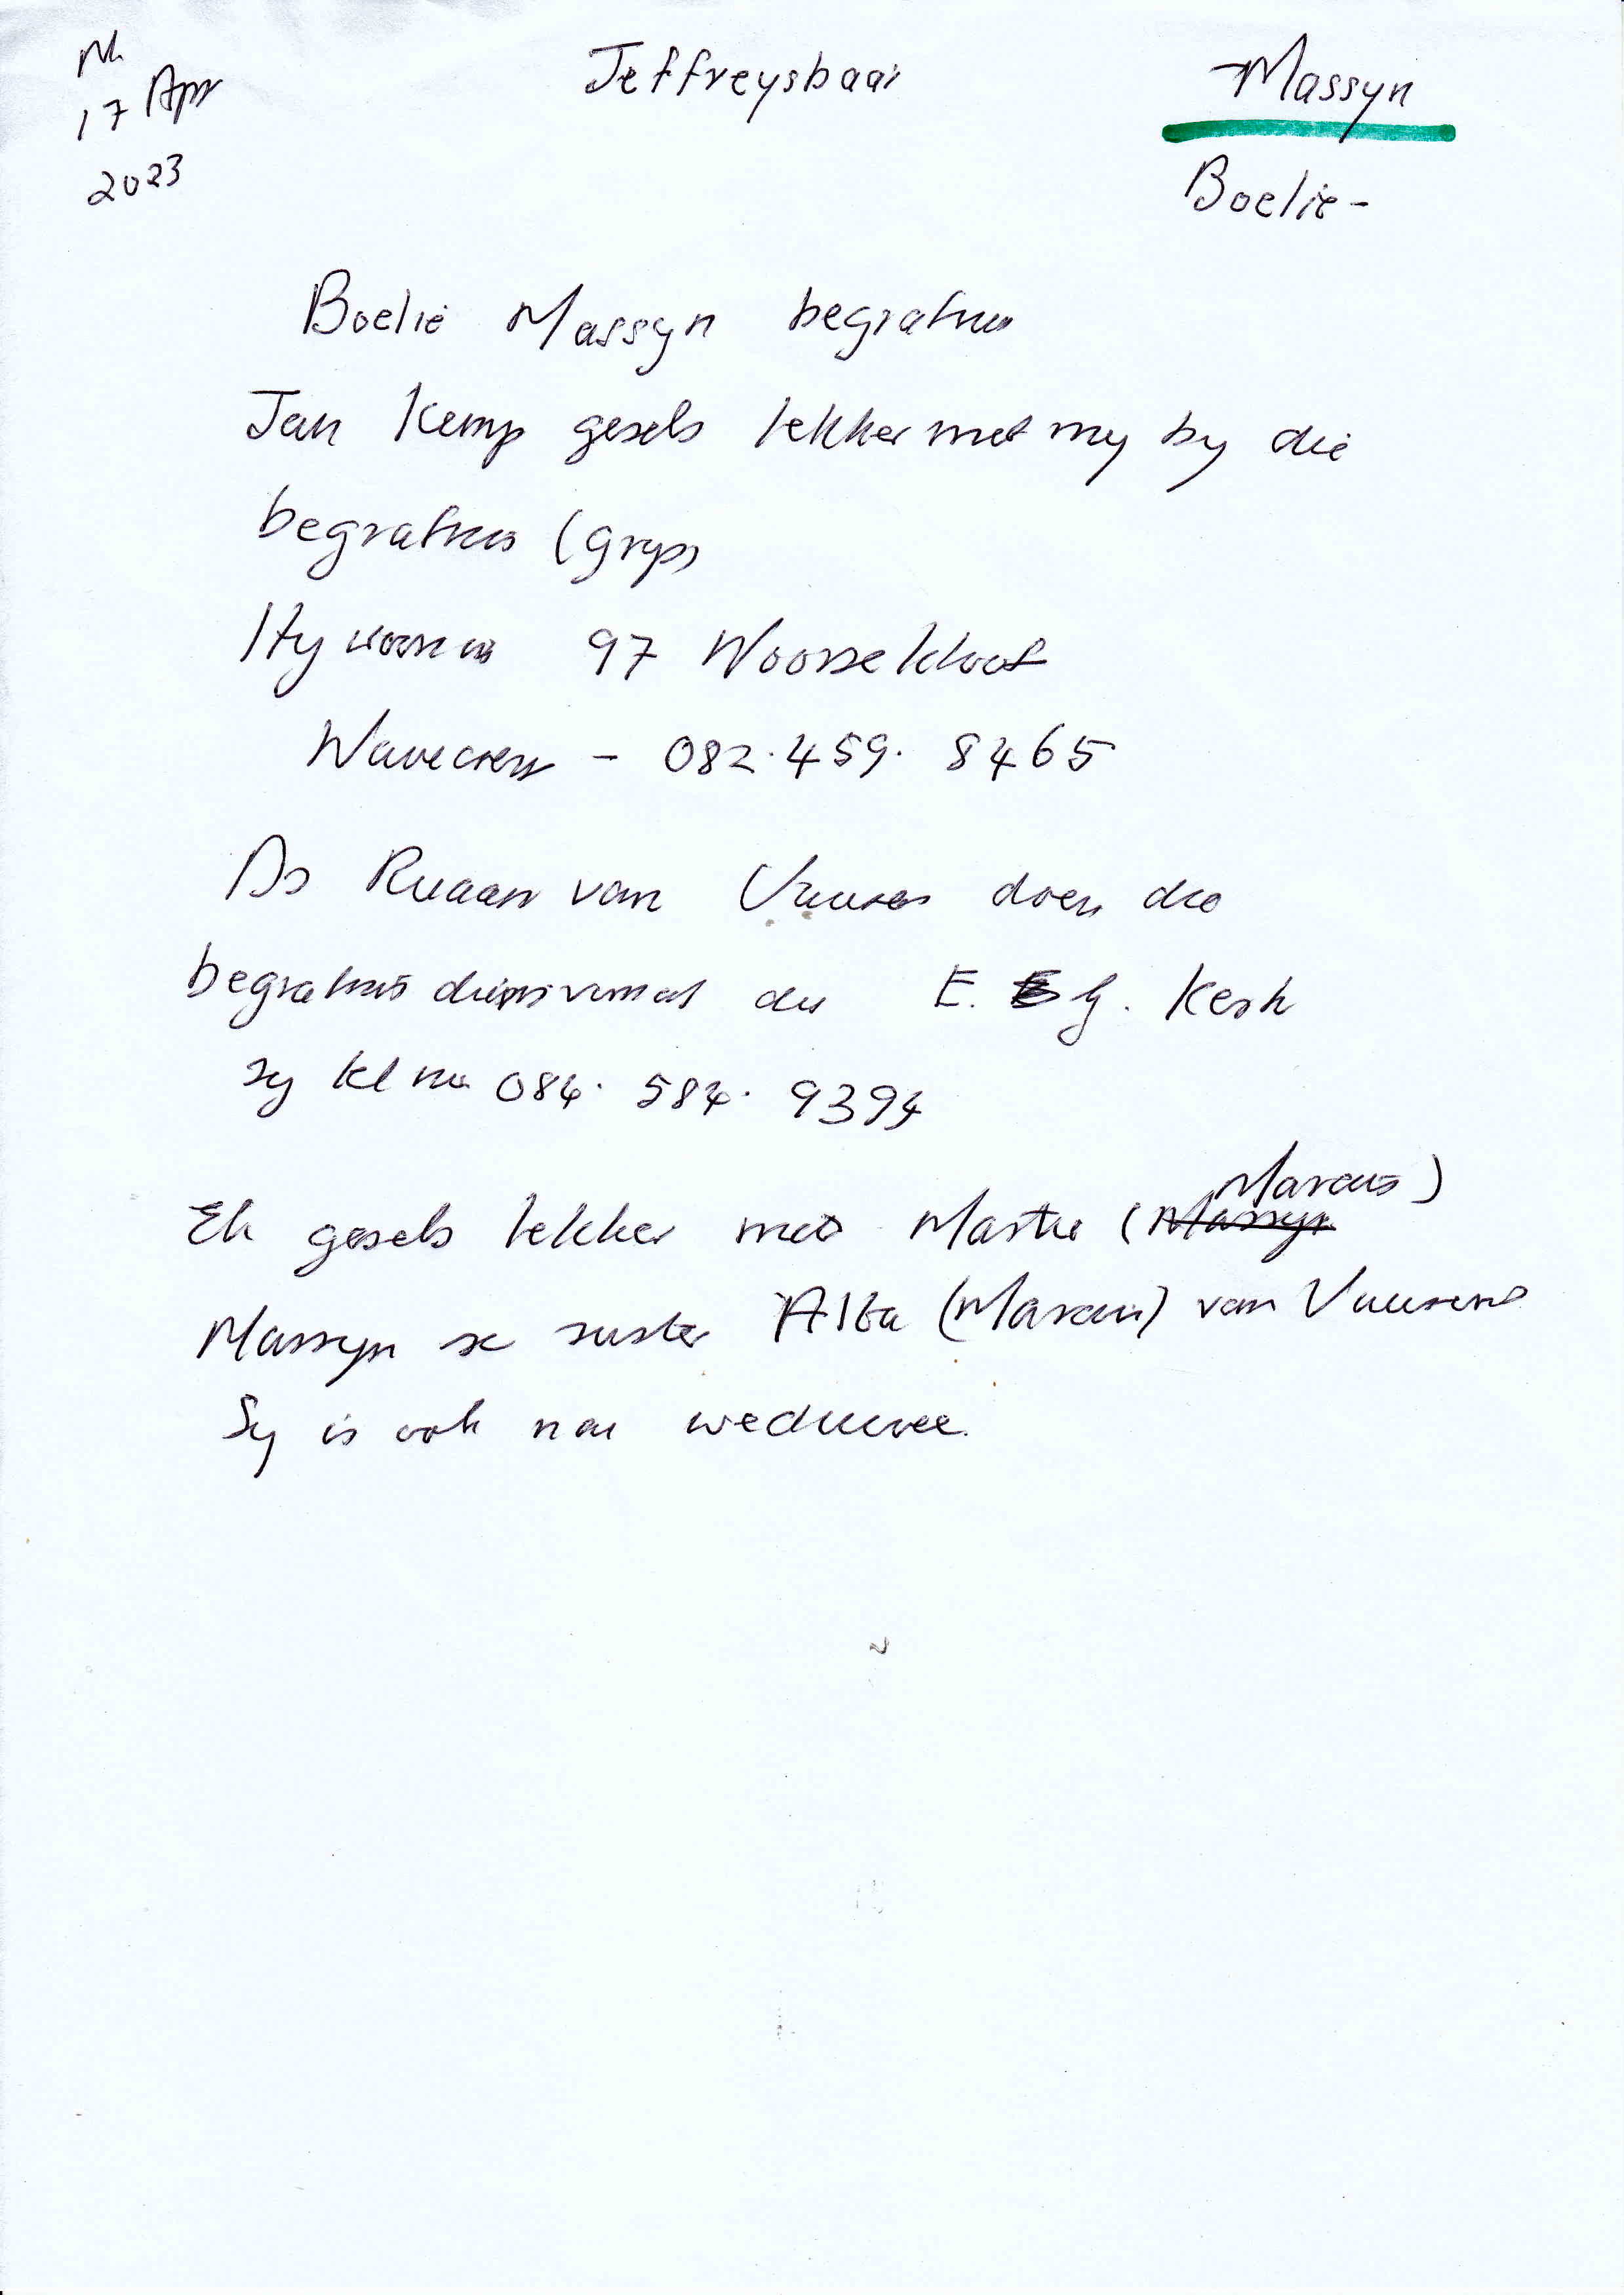 17 Apr
2023
Jeffreysbaai
Massyn
Boelie -
Boelie Massyn begrafnis
Jan Kemp gesels lekker met my by die
begrafnis (Gryps
Hy woon in 97 Noorsekloof
Wavecrest - 082.459. 8465
Ds Ruaan van Vuuren doen die
begrafnis diens vanaf die E. G. Kerk
sy sel nr 084. 584. 9394
Ek gesels lekker met Martie (Marais)
Massyn se suster Alba (Marais) van Vuuren
Sy is ook nou weduwee.